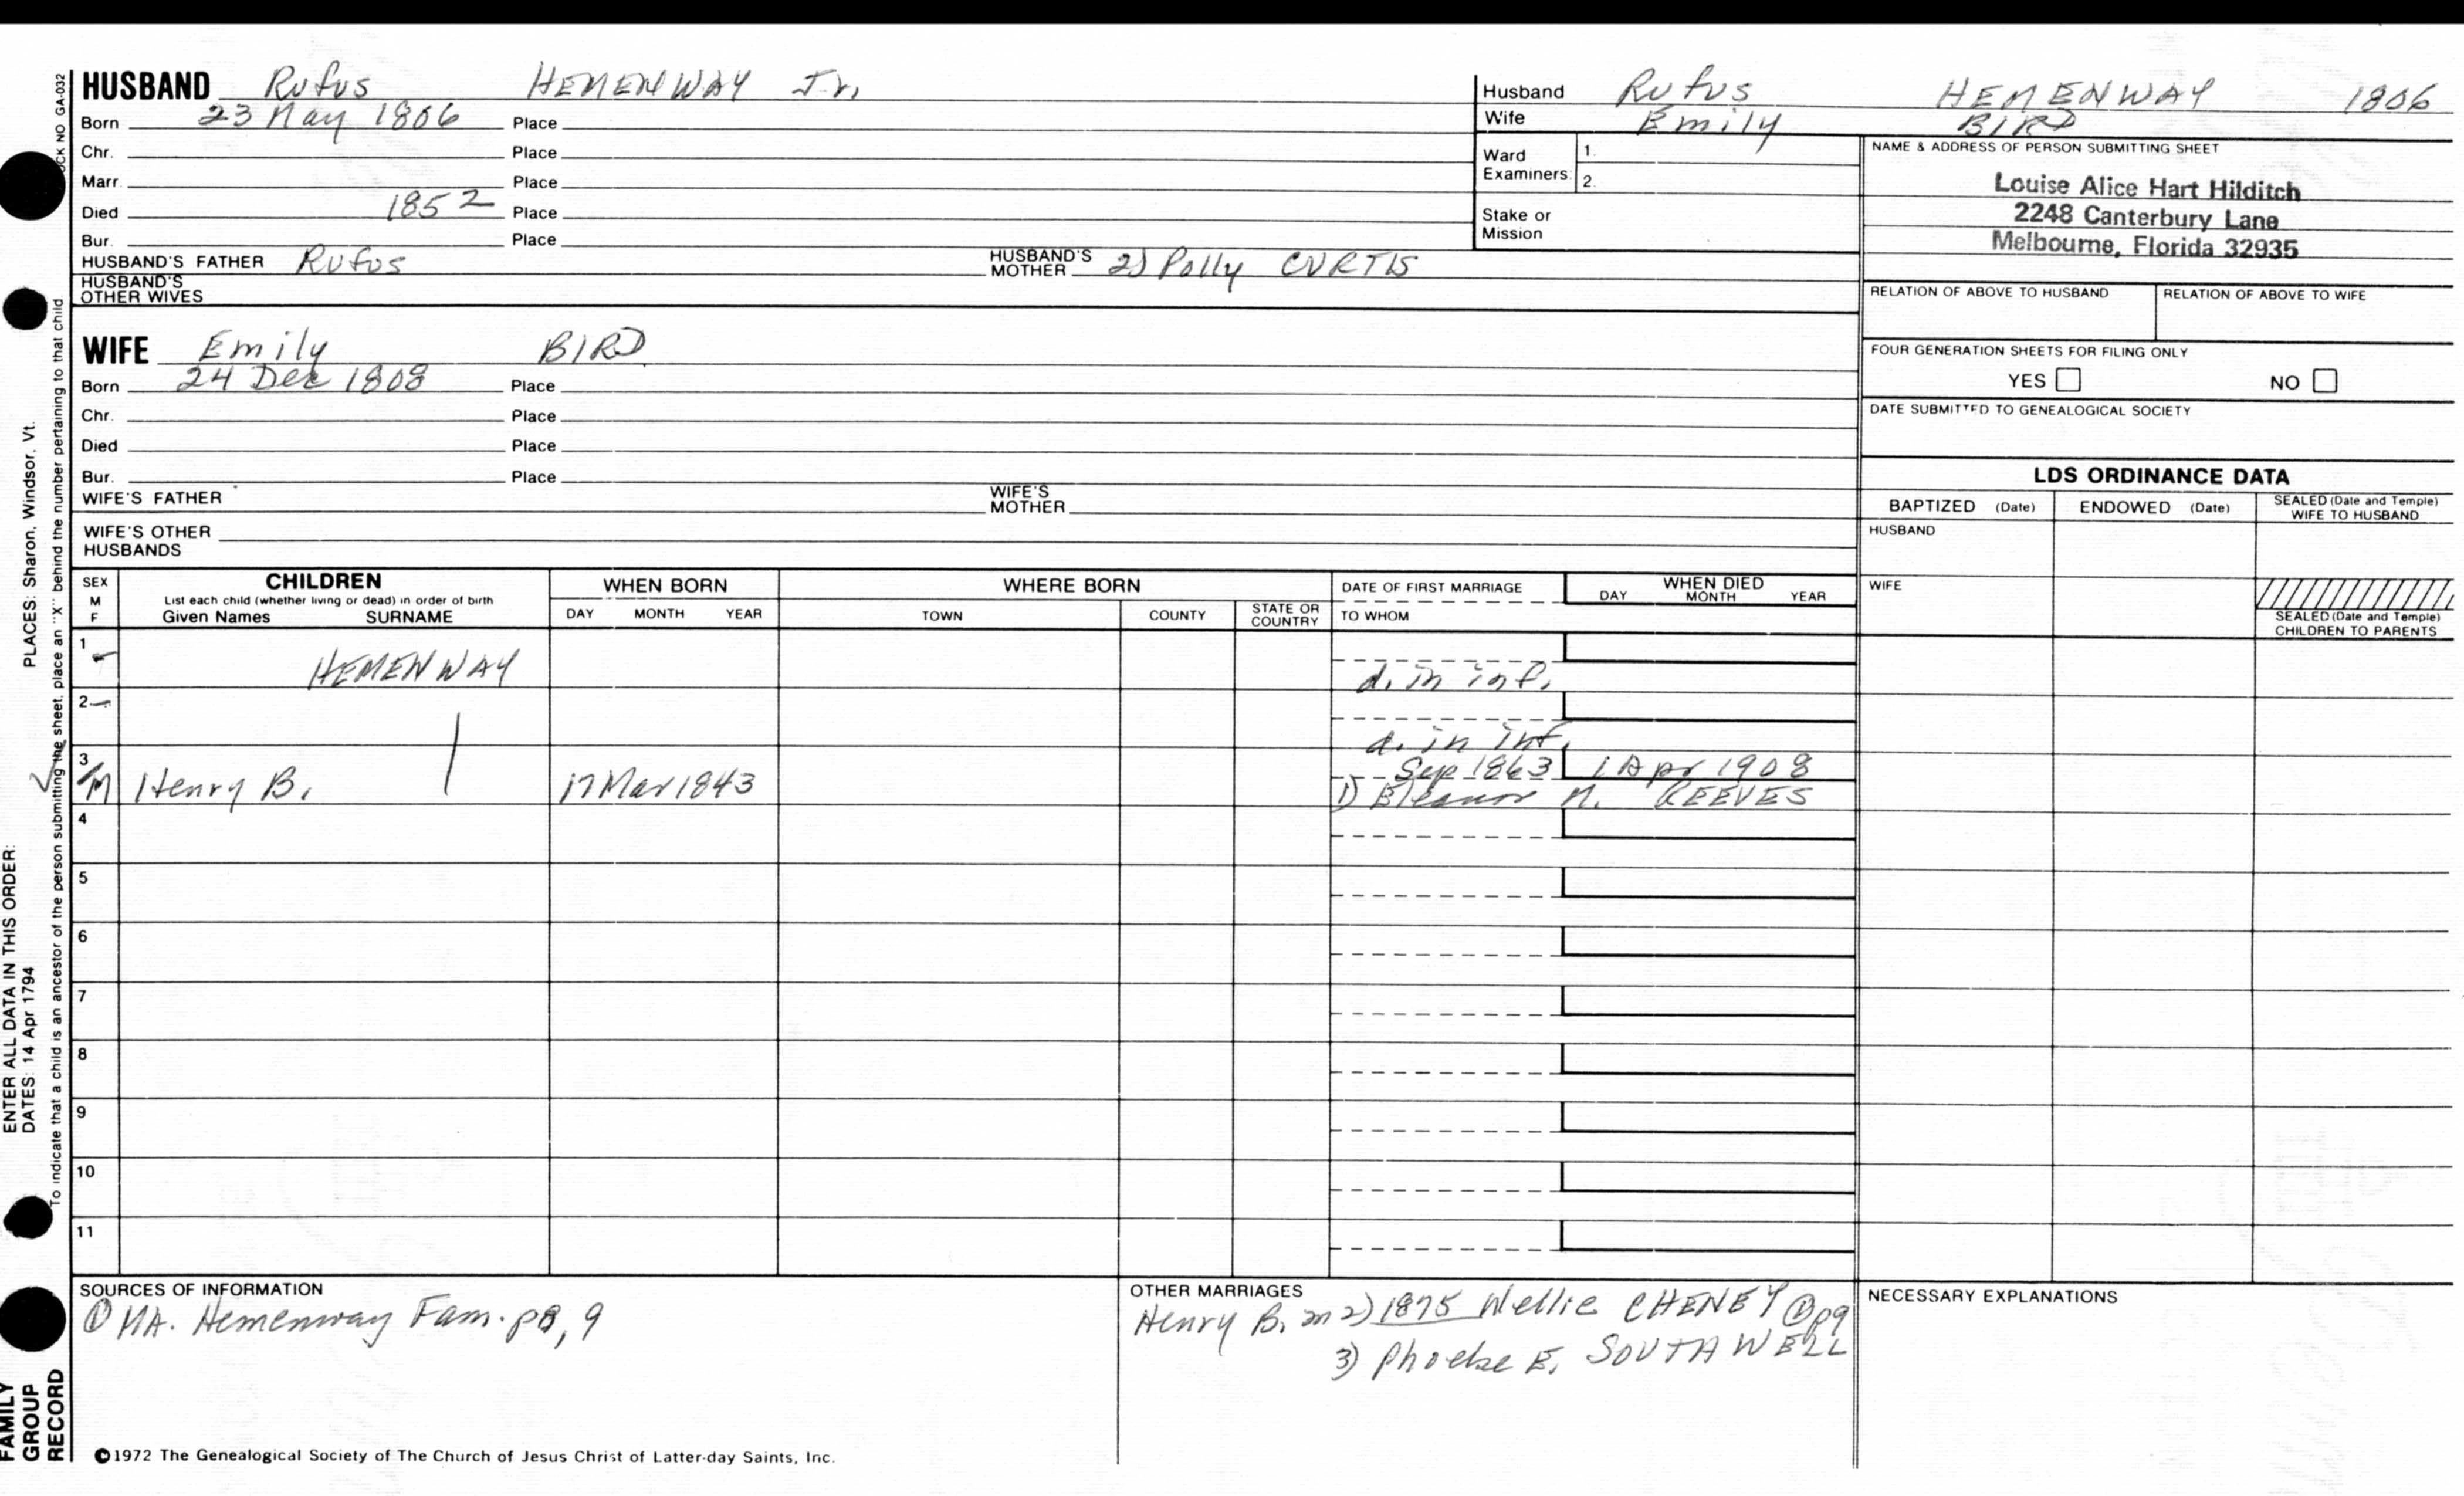 HUSBAND Rufus HEMENWAY Jr.
Born 23 May 1806 Place
Chr. Place
Marr. Place
Died 1852 Place
Bur. Place
HUSBAND'S FATHER Rufus HUSBAND'S MOTHER 2) Polly CURTIS
HUSBAND'S OTHER WIVES
Husband Rufus HEMENWAY 1806
Wife Emily BIRD
Ward Examiners: 1. 2.
Stake or Mission
NAME & ADDRESS OF PERSON SUBMITTING SHEET
Louise Alice Hart Hilditch
2248 Canterbury Lane
Melbourne, Florida 32935
RELATION OF ABOVE TO HUSBAND RELATION OF ABOVE TO WIFE
FOUR GENERATION SHEETS FOR FILING ONLY
YES NO
DATE SUBMITTED TO GENEALOGICAL SOCIETY
WIFE Emily BIRD
Born 24 Dec 1808 Place
Chr. Place
Died Place
Bur. Place
WIFE'S FATHER WIFE'S MOTHER
WIFE'S OTHER HUSBANDS
LDS ORDINANCE DATA
BAPTIZED (Date) ENDOWED (Date) SEALED (Date and Temple) WIFE TO HUSBAND
HUSBAND
WIFE
SEALED (Date and Temple) CHILDREN TO PARENTS
SEX M F CHILDREN List each child (whether living or dead) in order of birth Given Names SURNAME
WHEN BORN DAY MONTH YEAR
WHERE BORN TOWN COUNTY STATE OR COUNTRY
DATE OF FIRST MARRIAGE TO WHOM
WHEN DIED DAY MONTH YEAR
1 HEMENWAY d. in inf.
2 d. in inf.
3 M Henry B. 17 Mar 1843 Sep 1863 1 Apr 1908
1) Eleanor M. REEVES
4
5
6
7
8
9
10
11
SOURCES OF INFORMATION
① MA. Hemenway Fam. p8, 9
OTHER MARRIAGES
Henry B. m 2) 1875 Nellie CHENEY ① p9
3) Phoebe E. SOUTHWELL
NECESSARY EXPLANATIONS
©1972 The Genealogical Society of The Church of Jesus Christ of Latter-day Saints, Inc.
FAMILY GROUP RECORD
ENTER ALL DATA IN THIS ORDER:
DATES: 14 Apr 1794 PLACES: Sharon, Windsor, Vt.
To indicate that a child is an ancestor of the person submitting the sheet, place an "X" behind the number pertaining to that child
NO GA-032